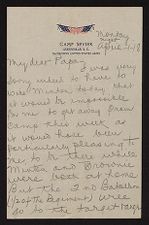 Monday
night
CAMP SEVIER
GREENVILLE, S. C.
April 1, 18
My dear Papa:
I was very
sorry indeed to have to
wire Minton today that
it would be impossible
for me to get away from
Camp this week as
it would have been
particularly pleasing to
me, to be there while
Minton and Bonnie
were both at home
But the 2nd Battalion
(of the Regiment) will
go to the target range